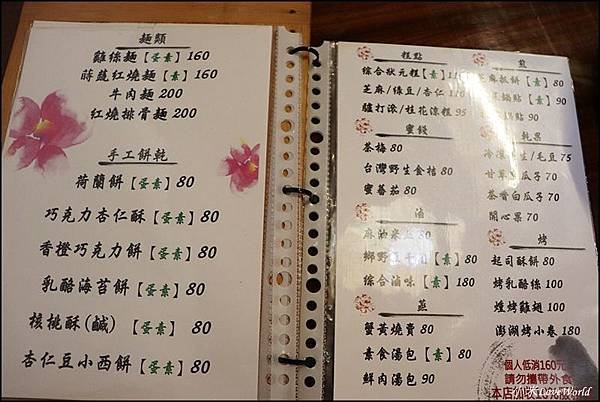 麵類
雞絲麵【蛋素】160
蒔蘿紅燒麵【素】160
牛肉麵 200
紅燒排骨麵 200
手工餅乾
荷蘭餅【蛋素】80
巧克力杏仁酥【蛋素】80
香橙巧克力餅【蛋素】80
乳酪海苔餅【蛋素】80
核桃酥(鹹)【蛋素】80
杏仁豆小西餅【蛋素】80
糕點
綜合狀元糕【素】
芝麻/綠豆/杏仁
驢打滾/桂花涼糕 95
蜜餞
茶梅 80
台灣野生金桔 80
蜜蕃茄 80
滷
麻油米血 80
鄉野豆干【素】80
綜合滷味【素】
蒸
蟹黃燒賣 80
素食湯包【素】80
鮮肉湯包 90
煎
芝麻抓餅【素】80
鍋貼【素】90
鍋貼 90
乾果
毛豆 75
甘草瓜子 70
茶香白瓜子 70
開心果 70
烤
起司酥餅 80
烤乳酪絲 100
煙烤雞翅 100
澎湖烤小卷 180
個人低消160元
請勿攜帶外食
本店